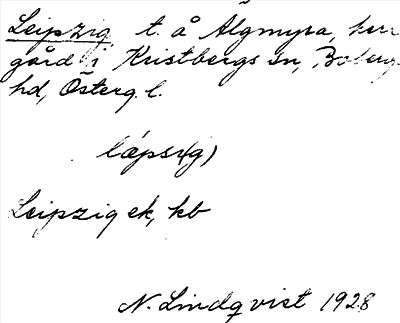 Leipzig t. å Älgmyra, herr
gård i Kristbergs sn, Bobergs
hd, Österg. l.
læpsi(g)
Leipzig ek, kb
N. Lindqvist 1928